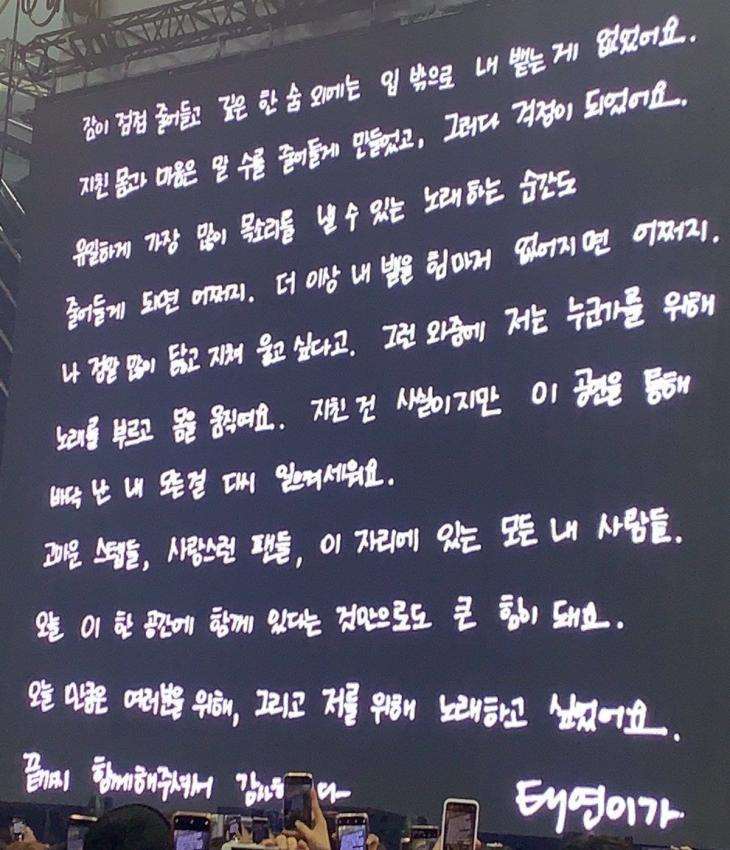 잠이 점점 줄어들고 깊은 한 숨 외에는 입 밖으로 내 뱉는게 없었어요.
지친 몸과 마음은 말 수를 줄어들게 만들었고, 그러다 걱정이 되었어요.
유일하게 가장 많이 목소리를 낼 수 있는 노래하는 순간도
줄어들게 되면 어쩌지. 더 이상 내 뱉을 힘마저 없어지면 어쩌지.
나 정말 많이 닳고 지쳐 울고 싶다고. 그런 와중에 저는 누군가를 위해
노래를 부르고 몸을 움직여요. 지친 건 사실이지만 이 공연을 통해
바닥 난 내 모든걸 다시 일으켜세워요.
고마운 스탭들, 사랑스런 팬들, 이 자리에 있는 모든 내 사람들.
오늘 이 한 공간에 함께 있다는 것만으로도 큰 힘이 돼요.
오늘 만큼은 여러분을 위해, 그리고 저를 위해 노래하고 싶었어요.
끝까지 함께해주셔서
태연이가